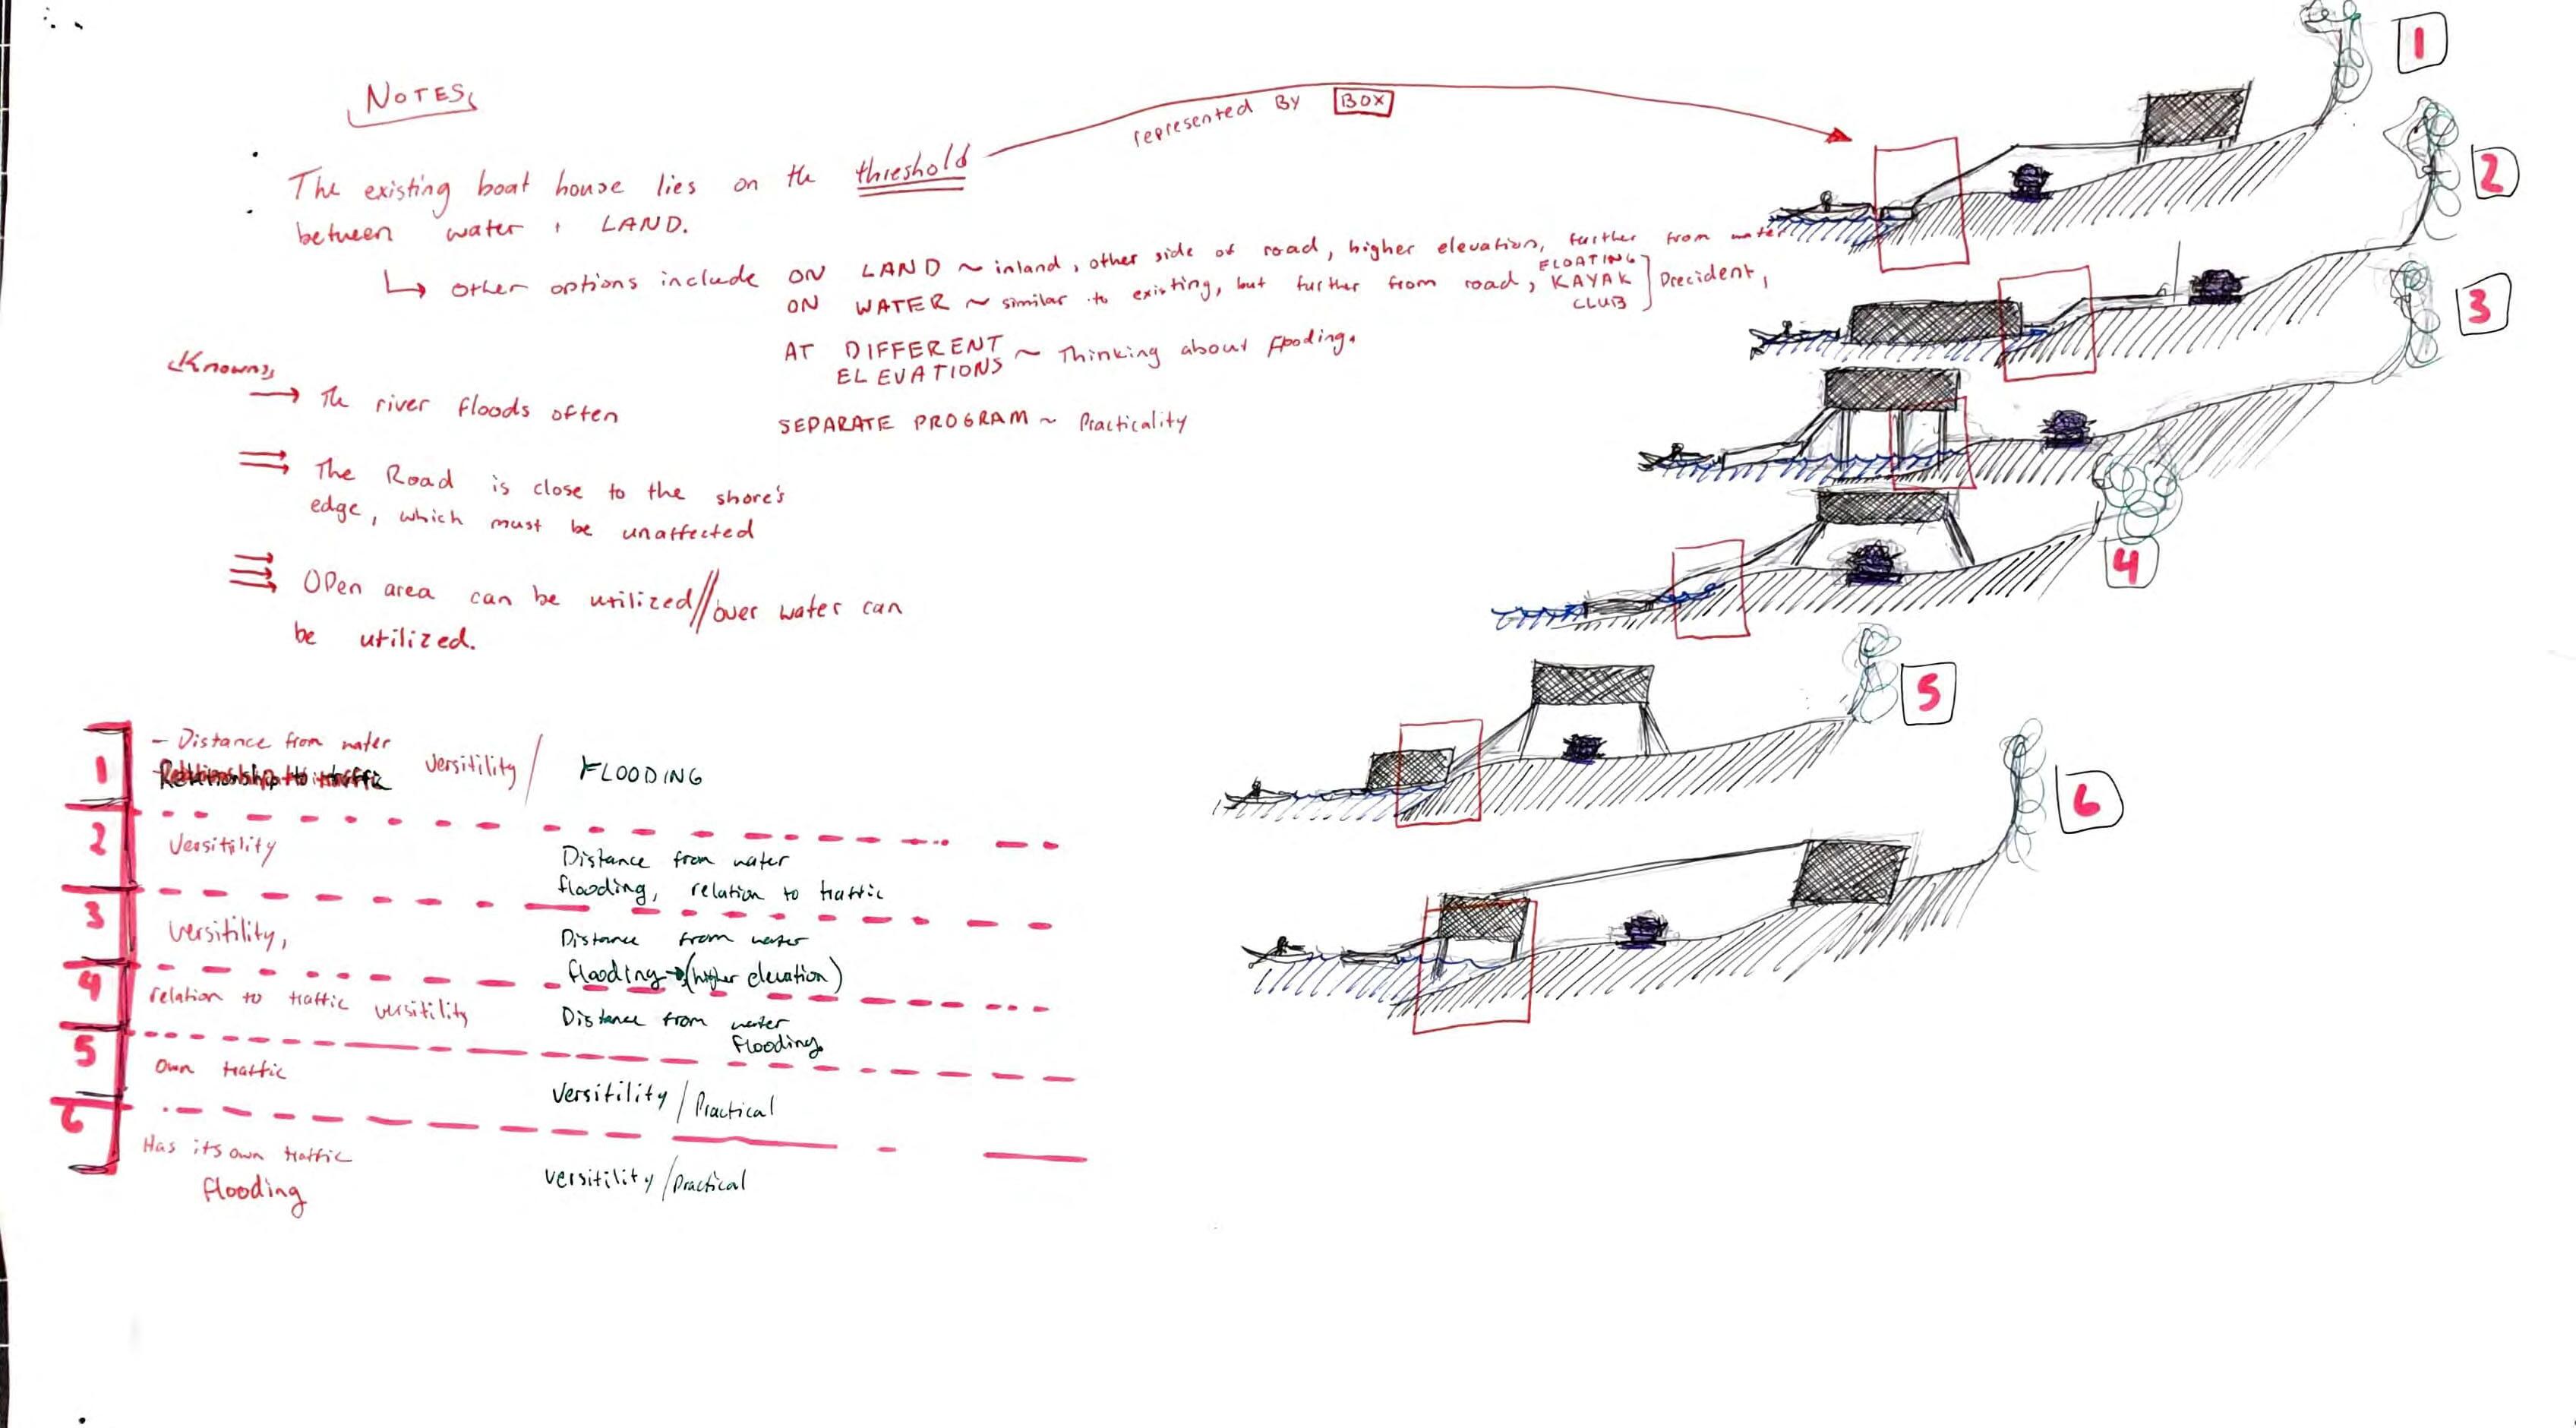 NOTES
The existing boat house lies on the threshold
between water + LAND.
represented By BOX
other options include ON LAND ~ inland, other side of road, higher elevation, further from water
ON WATER ~ similar to existing, but further from road, FLOATING
KAYAK
CLUB
Precident,
AT DIFFERENT
ELEVATIONS ~ Thinking about flooding.
SEPARATE PROGRAM ~ Practicality
Knowns
→ The river floods often
The Road is close to the shore's
edge, which must be unaffected
Open area can be utilized // over water can
be utilized.
1
- Distance from water
Relationship to traffic
Versitility / FLOODING
2
Versitility
Distance from water
flooding, relation to traffic
3
Versitility,
Distance from water
flooding → (higher elevation)
4
relation to traffic versitility
Distance from water
flooding
5
Own traffic
Versitility / Practical
6
Has its own traffic
flooding
versitility / practical
1
2
3
4
5
6